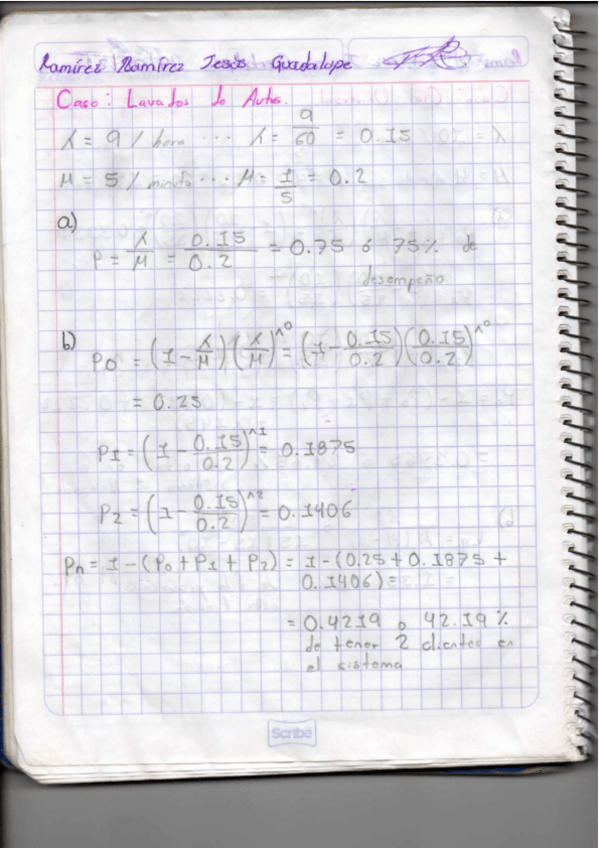 Ramírez Ramírez Jesús Guadalupe
Caso: Lavados de Autos.
λ = 9 / hora ... λ = 9/60 = 0.15
M = 5 / minuto ... M = 1/5 = 0.2
a)
P = λ/M = 0.15/0.2 = 0.75 ó 75% de
desempeño
b)
P0 = (1 - λ/M)(λ/M)^0 = (1 - 0.15/0.2)(0.15/0.2)^0
= 0.25
P1 = (1 - 0.15/0.2)^1 = 0.1875
P2 = (1 - 0.15/0.2)^2 = 0.1406
Pn = 1 - (P0 + P1 + P2) = 1 - (0.25 + 0.1875 +
0.1406) =
= 0.4219 o 42.19%
de tener 2 clientes en
el sistema
Scribe